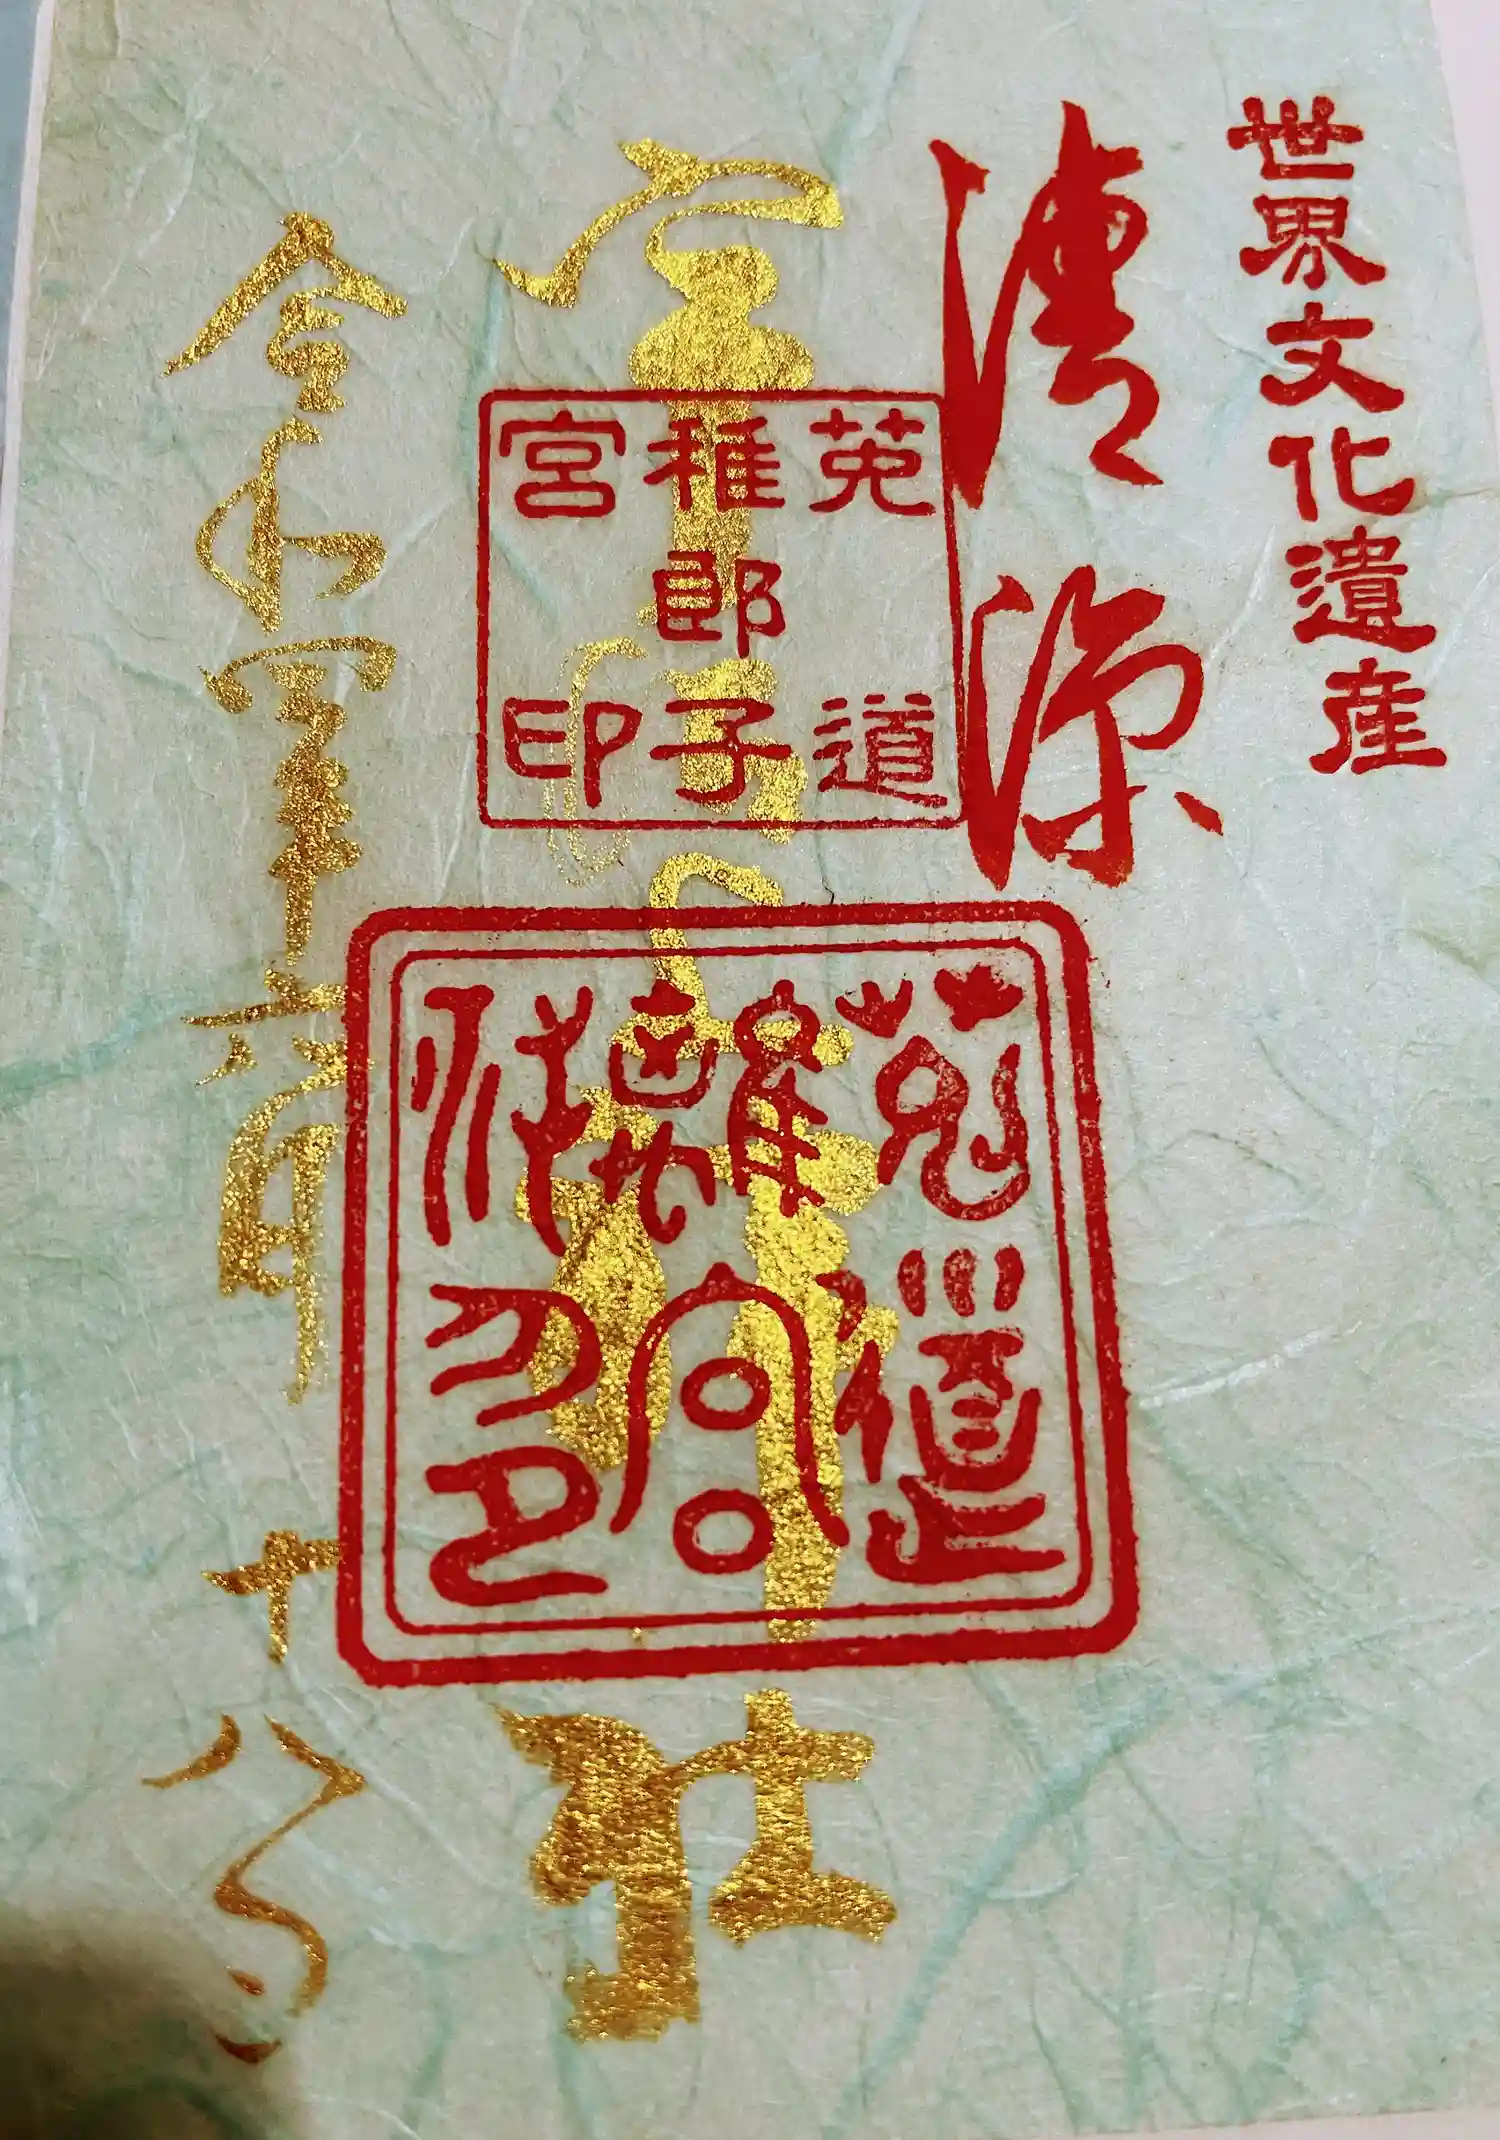 世界文化遺産
宇治上神社
菟道
稚郎子
宮印
菟道
離宮
神印
令和四年六月十八日